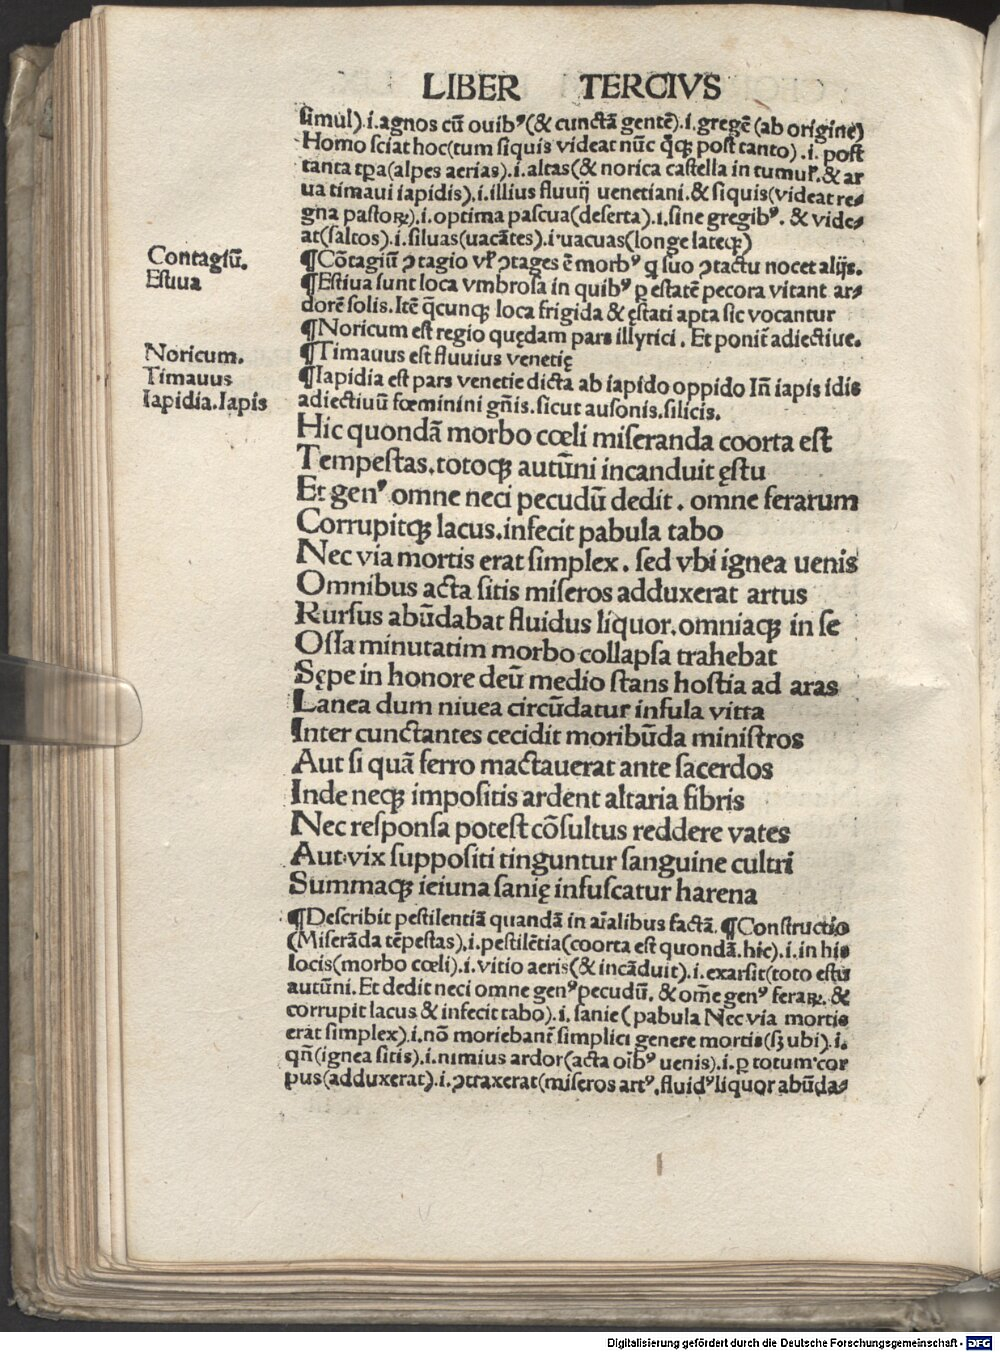 LIBER TERCIVS
simul).i.agnos cū ouibꝰ(& cunctā gentē).i.gregē(ab origine)
Homo sciat hoc(tum siquis videat nūc q̄qꝫ post tanto).i. post
tanta tꝑa(alpes aerias).i.altas(& norica castella in tumul̕.& ar
ua timaui iapidis).i.illius fluuij uenetiani.& siquis(videat re⸗
gna pastoꝝ).i.optima pascua(deserta).i.sine gregibꝰ. & vide⸗
at(saltos).i.siluas(uacātes).i.uacuas(longe lateqꝫ)
Contagiū.
¶Cōtagiū ꝯtagio vl̕ ꝯtages ē morbꝰ q̕ suo ꝯtactu nocet alijs.
Estiua
¶Estiua sunt loca vmbrosa in quibꝰ ꝑ estatē pecora vitant ar⸗
dorē solis. Itē q̄cunqꝫ loca frigida & ęstati apta sic vocantur
¶Noricum est regio quędam pars illyrici. Et ponit̕ adiectiue.
Noricum.
¶Timauus est fluuius venetię
Timauus
¶Iapidia est pars venetie dicta ab iapido oppido In̄ iapis idis
Iapidia.Iapis
adiectiuū fœminini gn̄is.sicut ausonis.silicis.
Hic quondā morbo cœli miseranda coorta est
Tempestas.totoqꝫ autūni incanduit ęstu
Et genꝰ omne neci pecudū dedit. omne ferarum
Corrupitqꝫ lacus.infecit pabula tabo
Nec via mortis erat simplex. sed vbi ignea uenis
Omnibus acta sitis miseros adduxerat artus
Rursus abūdabat fluidus liquor.omniaqꝫ in se
Ossa minutatim morbo collapsa trahebat
Sępe in honore deū medio stans hostia ad aras
Lanea dum niuea circūdatur infula vitta
Inter cunctantes cecidit moribūda ministros
Aut si quā ferro mactauerat ante sacerdos
Inde neqꝫ impositis ardent altaria fibris
Nec responsa potest cōsultus reddere vates
Aut vix suppositi tinguntur sanguine cultri
Summaqꝫ ieiuna sanię infuscatur harena
¶Describit pestilentiā quandā in aīalibus factā. ¶Constructio
(Miserāda tēpestas).i.pestilētia(coorta est quondā.hic).i.in his
locis(morbo cœli).i.vitio aeris(& incāduit).i.exarsit(toto estu
autūni. Et dedit neci omne genꝰ pecudū. & om̄e genꝰ feraꝝ. &
corrupit lacus & infecit tabo).i.sanie(pabula Nec via mortis
erat simplex).i.nō moriebant̕ simplici genere mortis(sꝫ ubi).i.
qn̄(ignea sitis).i.nimius ardor(acta oībꝰ uenis).i.ꝑ totum cor
pus(adduxerat).i.ꝯtraxerat(miseros artꝰ.fluidꝰ liquor abūda⸗
Digitalisierung gefördert durch die Deutsche Forschungsgemeinschaft - DFG